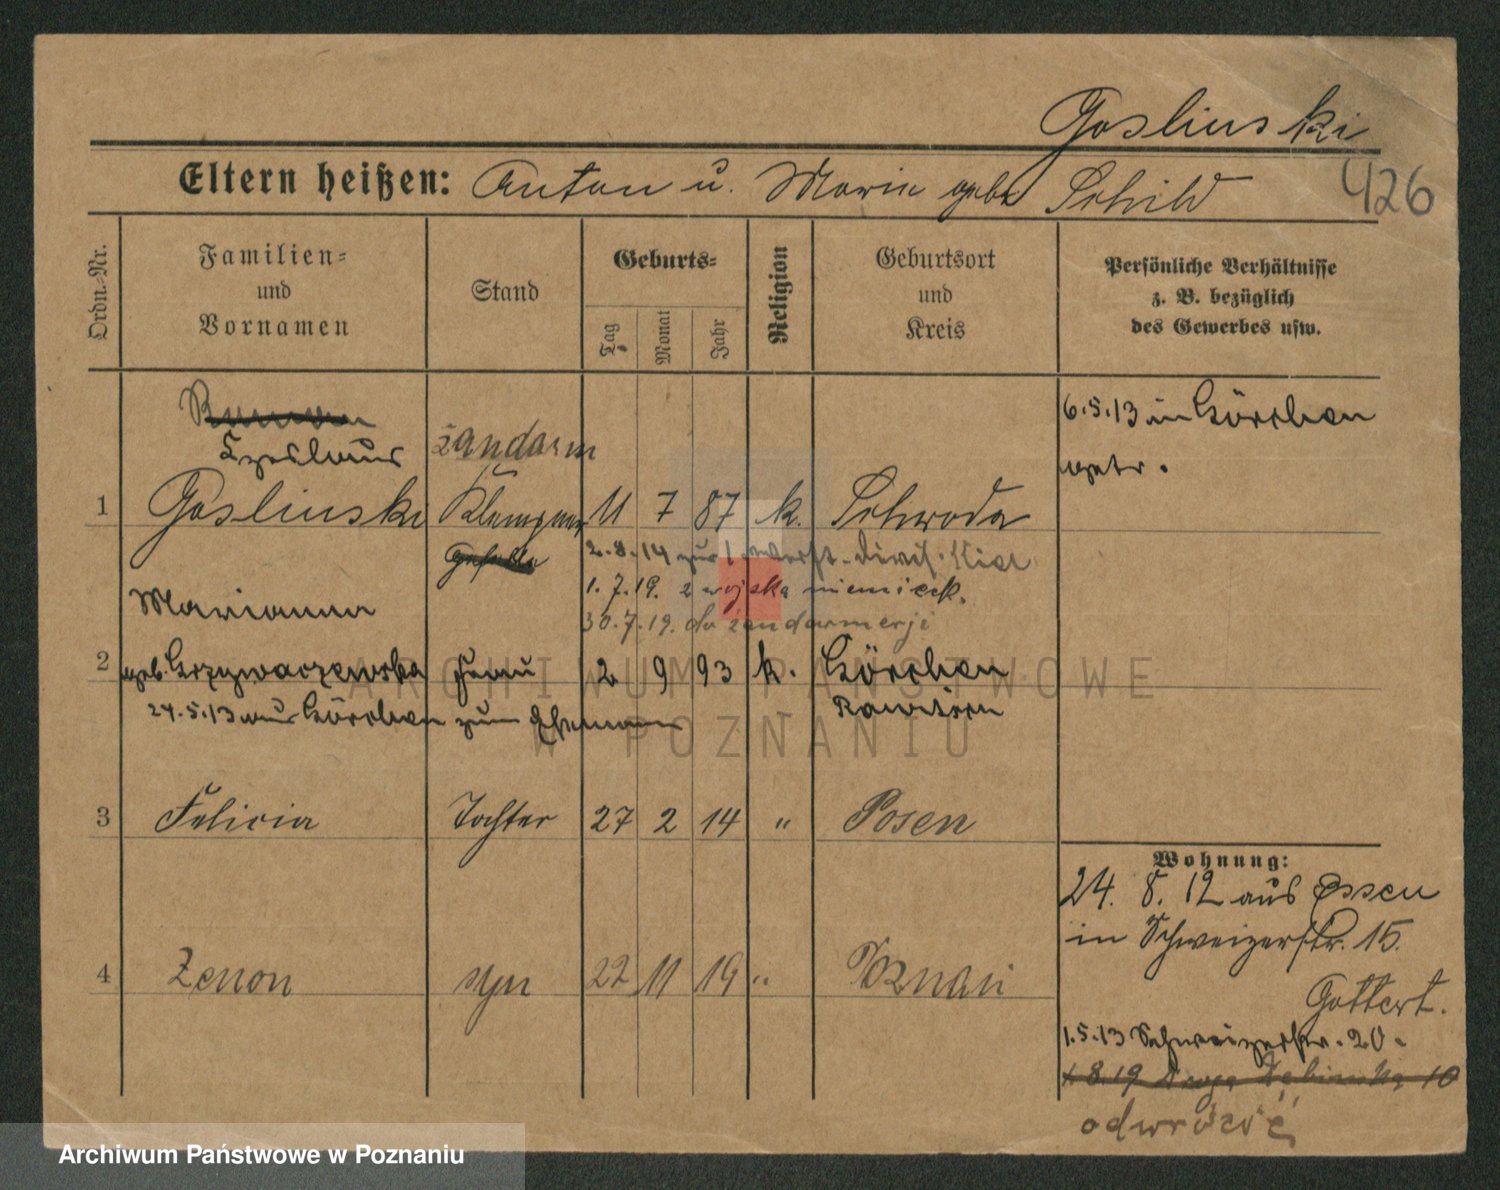 Goslinski
Eltern heißen: Anton u. Marie geb. Schild
426
Ordn.-Nr.
Familien-
und
Vornamen
Stand
Geburts-
Tag
Monat
Jahr
Religion
Geburtsort
und
Kreis
Persönliche Verhältnisse
z. B. bezüglich
des Gewerbes usw.
6.5.13 in Görchen
getr.
Czeslaus
żandarm
1 Goslinski Klempner 11 7 87 k. Schroda
Geselle
2.8.14 zur Werft-Divis. Kiel
1.7.19. z wojska niemieck.
30.7.19. do żandarmerji
Marianna
2 geb. Grzywaczewska Frau 2 9 93 k. Görchen
24.5.13 aus Görchen zum Ehemann
Rawitsch
3 Felicia Tochter 27 2 14 " Posen
Wohnung:
24. 8. 12 aus Essen
in Schweizerstr. 15.
4 Zenon syn 22 11 19 " Poznań
Gottert.
1.5.13 Schweizerstr. 20.
1.8.19 Droga Dębinska 10
odwrócić
ARCHIWUM PAŃSTWOWE
W POZNANIU
Archiwum Państwowe w Poznaniu